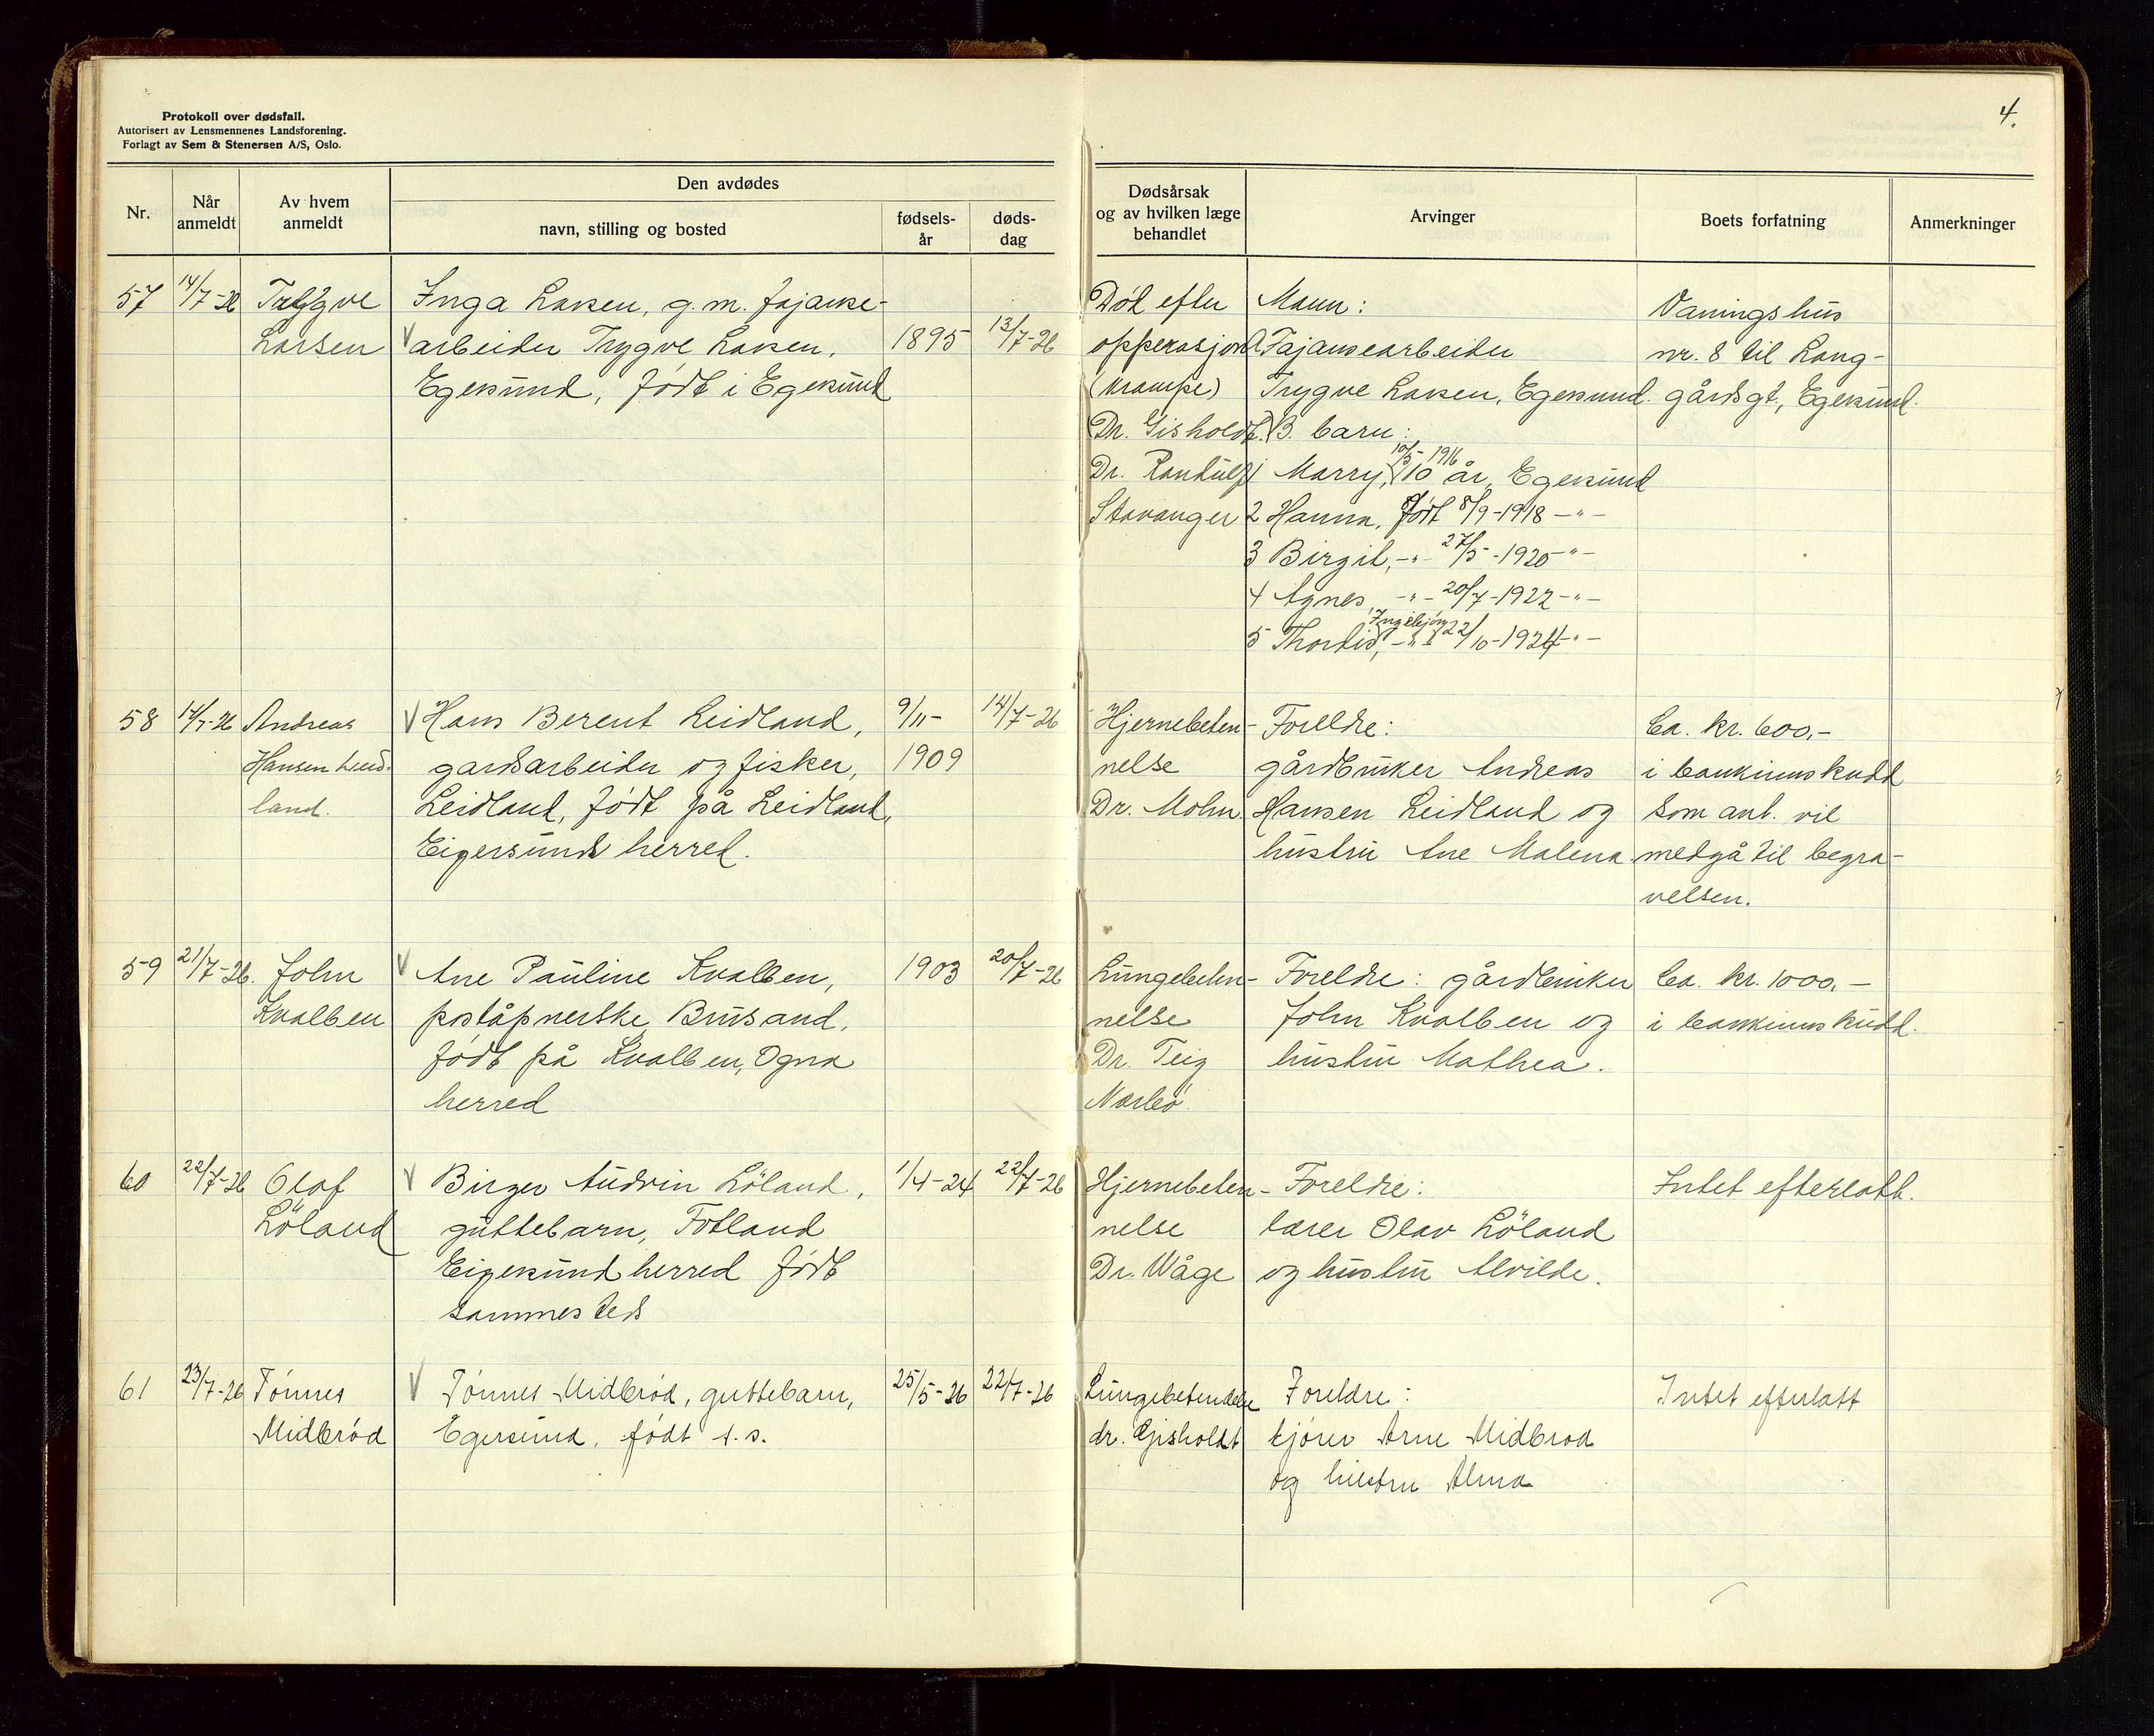 Protokoll over dødsfall.
Autorisert av Lensmennenes Landsforening.
Forlagt av Sem & Stenersen A/S, Oslo.
4.
Nr.
Når anmeldt
Av hvem anmeldt
Den avdødes
navn, stilling og bosted
fødsels-år
døds-dag
Dødsårsak og av hvilken læge behandlet
Arvinger
Boets forfatning
Anmerkninger
57
14/7-26
Trygve
Larsen
Inga Larsen, g.m. fajanse-
arbeider Trygve Larsen,
Egersund, født i Egersund
1895
13/7-26
Død efter
opperasjon
(krampe)
Dr. Gisholdt.
Dr. Randulf
Stavanger
Mann:
Fajansearbeider
Trygve Larsen, Egersund.
B. barn:
1 Marry, 10/5-1916 10 år, Egersund
2 Hanna, født 8/9-1918 -"-
3 Birgit, -"- 27/5-1920 -"-
4 Agnes, -"- 20/7-1922 -"-
5 Thordis, Ingebjørg -"- 22/10-1924 -"-
Vaningshus
nr. 8 til Lang-
gårdsgt, Egersund.
58
14/7-26
Andreas
Hansen Leid-
land.
Hans Berent Leidland,
gardsarbeider og fisker,
Leidland, født på Leidland,
Eigersunds herred.
9/11-
1909
14/7-26
Hjernebeten-
nelse
Dr. Mohn
Foreldre:
gårdbruker Andreas
Hansen Leidland og
hustru Ane Malena
Ca. kr. 600,-
i bankinnskudd
som ant. vil
medgå til begra-
velsen.
59
21/7-26.
John
Kvalben
Ane Pauline Kvalben,
poståpnerske, Brusand,
født på Kvalben, Ogna
herred
1903
20/7-26
Lungebeten-
nelse
Dr. Teig
Nærbø.
Foreldre: gårdbruker
John Kvalben og
hustru Mathea.
Ca. kr. 1000,-
i bankinnskudd.
60
22/7-26
Olaf
Löland
Birger Audvin Löland,
guttebarn, Fotland
Eigersund herred født
sammesteds
1/4-24
22/7-26
Hjernebeten-
nelse
Dr. Wåge
Foreldre:
lærer Olav Löland
og hustru Alvilde.
Intet efterlatt.
61
23/7-26
Tønnes
Midbrød
Tønnes Midbrød, guttebarn,
Egersund, født s.s.
25/5-26
22/7-26
dr. Gjisholdt
Foreldre:
kjører Arne Midbrød
og hustru Alma
Intet efterlatt